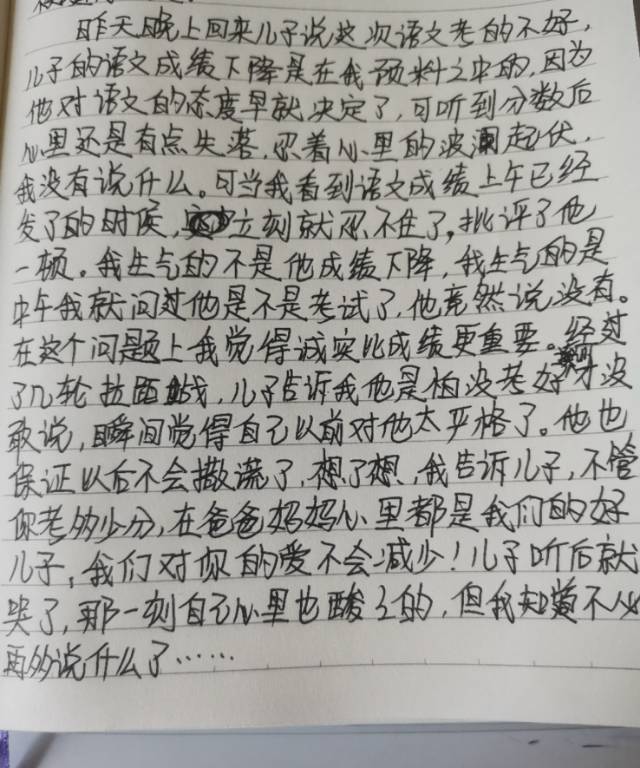 昨天晚上回来儿子说这次语文考的不好，
儿子的语文成绩下降是在我预料之中的，因为
他对语文的态度早就决定了，可听到分数后
心里还是有点失落，忍着心里的波澜起伏，
我没有说什么。可当我看到语文成绩上午已经
发了的时候，立刻就忍不住了，批评了他
一顿。我生气的不是他成绩下降，我生气的是
中午我就问过他是不是考试了，他竟然说没有。
在这个问题上我觉得诚实比成绩更重要。经过
了几轮拉西战，儿子告诉我他是怕没考好才没
敢说，瞬间觉得自己以前对他太严格了。他也
保证以后不会撒谎了，想了想，我告诉儿子，不管
你考多少分，在爸爸妈妈心里都是我们的好
儿子，我们对你的爱不会减少！儿子听后就
哭了，那一刻自己心里也酸之的，但我知道不必
再多说什么了……